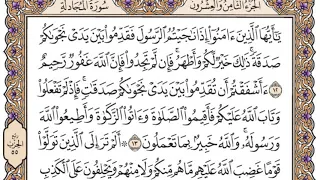 الجزء الثامن والعشرون
سورة المجادلة
يَٰٓأَيُّهَا ٱلَّذِينَ ءَامَنُوٓا۟ إِذَا نَٰجَيْتُمُ ٱلرَّسُولَ فَقَدِّمُوا۟ بَيْنَ يَدَىْ نَجْوَىٰكُمْ
صَدَقَةً ۚ ذَٰلِكَ خَيْرٌ لَّكُمْ وَأَطْهَرُ ۚ فَإِن لَّمْ تَجِدُوا۟ فَإِنَّ ٱللَّهَ غَفُورٌ رَّحِيمٌ
١٢ ءَأَشْفَقْتُمْ أَن تُقَدِّمُوا۟ بَيْنَ يَدَىْ نَجْوَىٰكُمْ صَدَقَٰتٍ ۚ فَإِذْ لَمْ تَفْعَلُوا۟
وَتَابَ ٱللَّهُ عَلَيْكُمْ فَأَقِيمُوا۟ ٱلصَّلَوٰةَ وَءَاتُوا۟ ٱلزَّكَوٰةَ وَأَطِيعُوا۟ ٱللَّهَ
وَرَسُولَهُۥ ۚ وَٱللَّهُ خَبِيرٌۢ بِمَا تَعْمَلُونَ ١٣ ۞ أَلَمْ تَرَ إِلَى ٱلَّذِينَ تَوَلَّوْا۟
قَوْمًا غَضِبَ ٱللَّهُ عَلَيْهِم مَّا هُم مِّنكُمْ وَلَا مِنْهُمْ وَيَحْلِفُونَ عَلَى ٱلْكَذِبِ
الحزب
٥٥